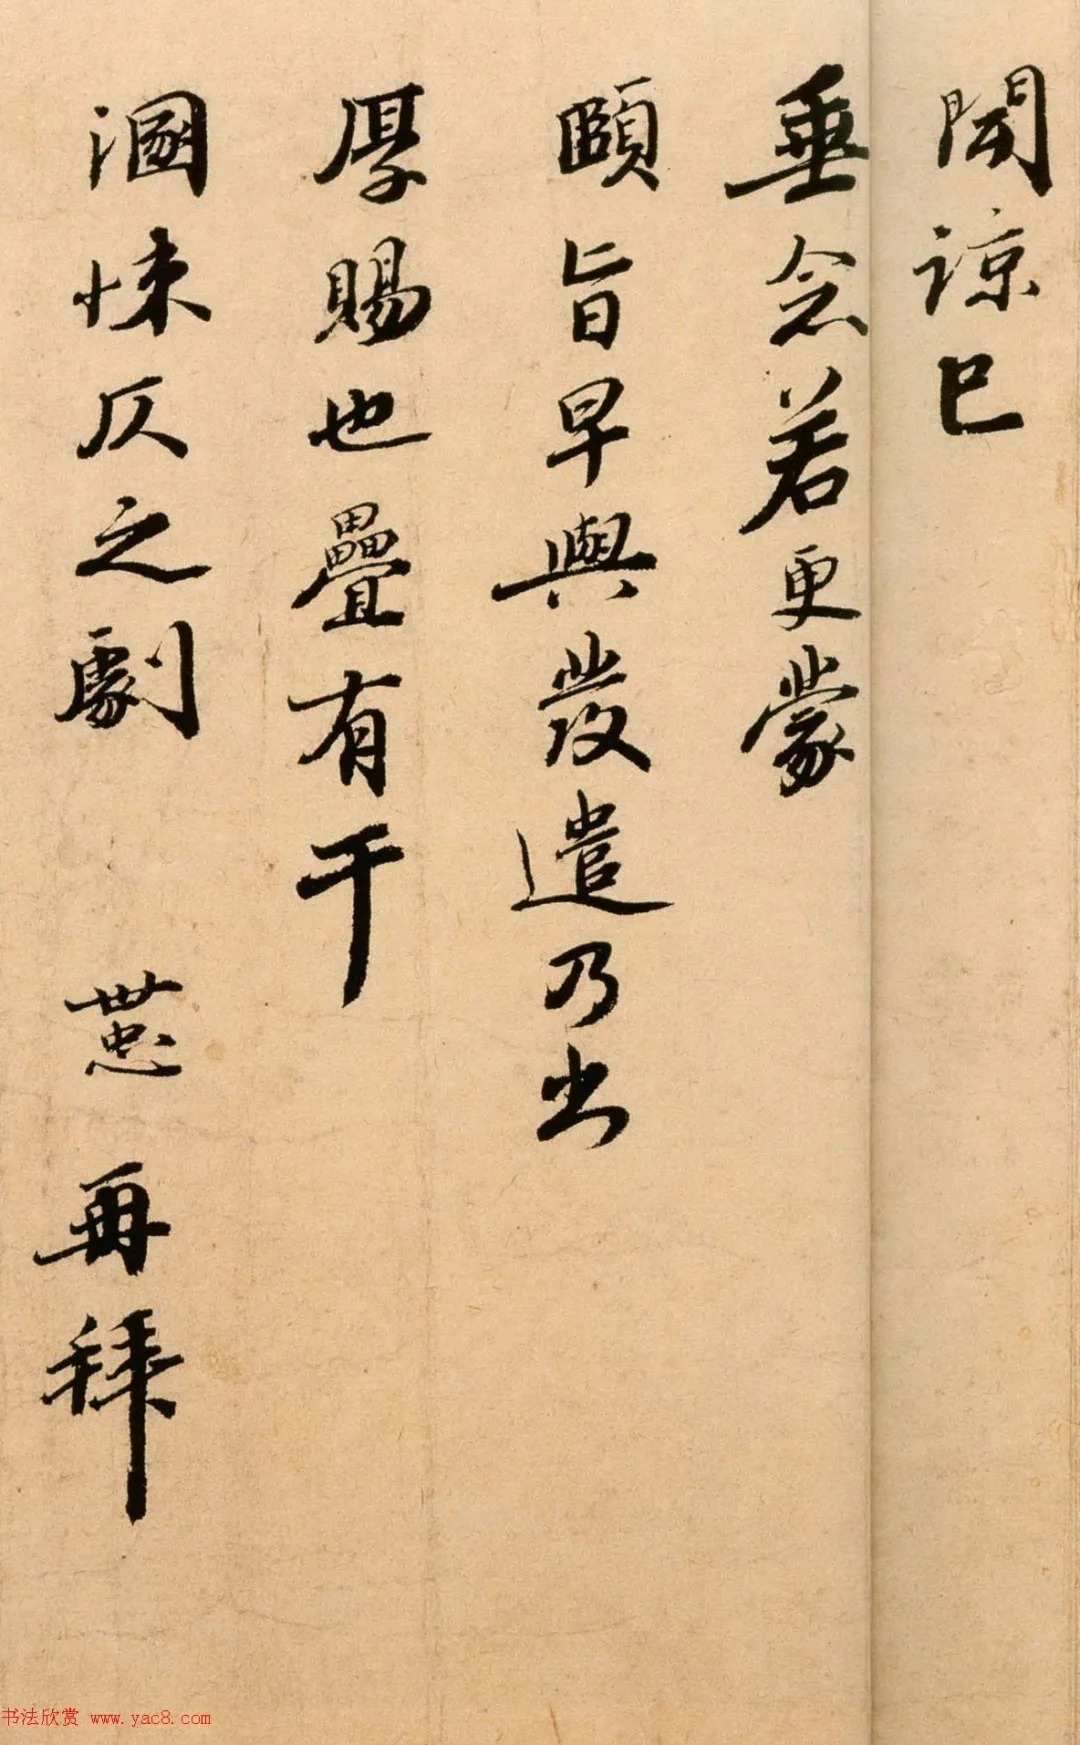 闻谅已
垂念若更蒙
頤旨早與發遣乃出
厚賜也疊有干
溷悚仄之劇 世忠再拜
书法欣赏 www.yac8.com